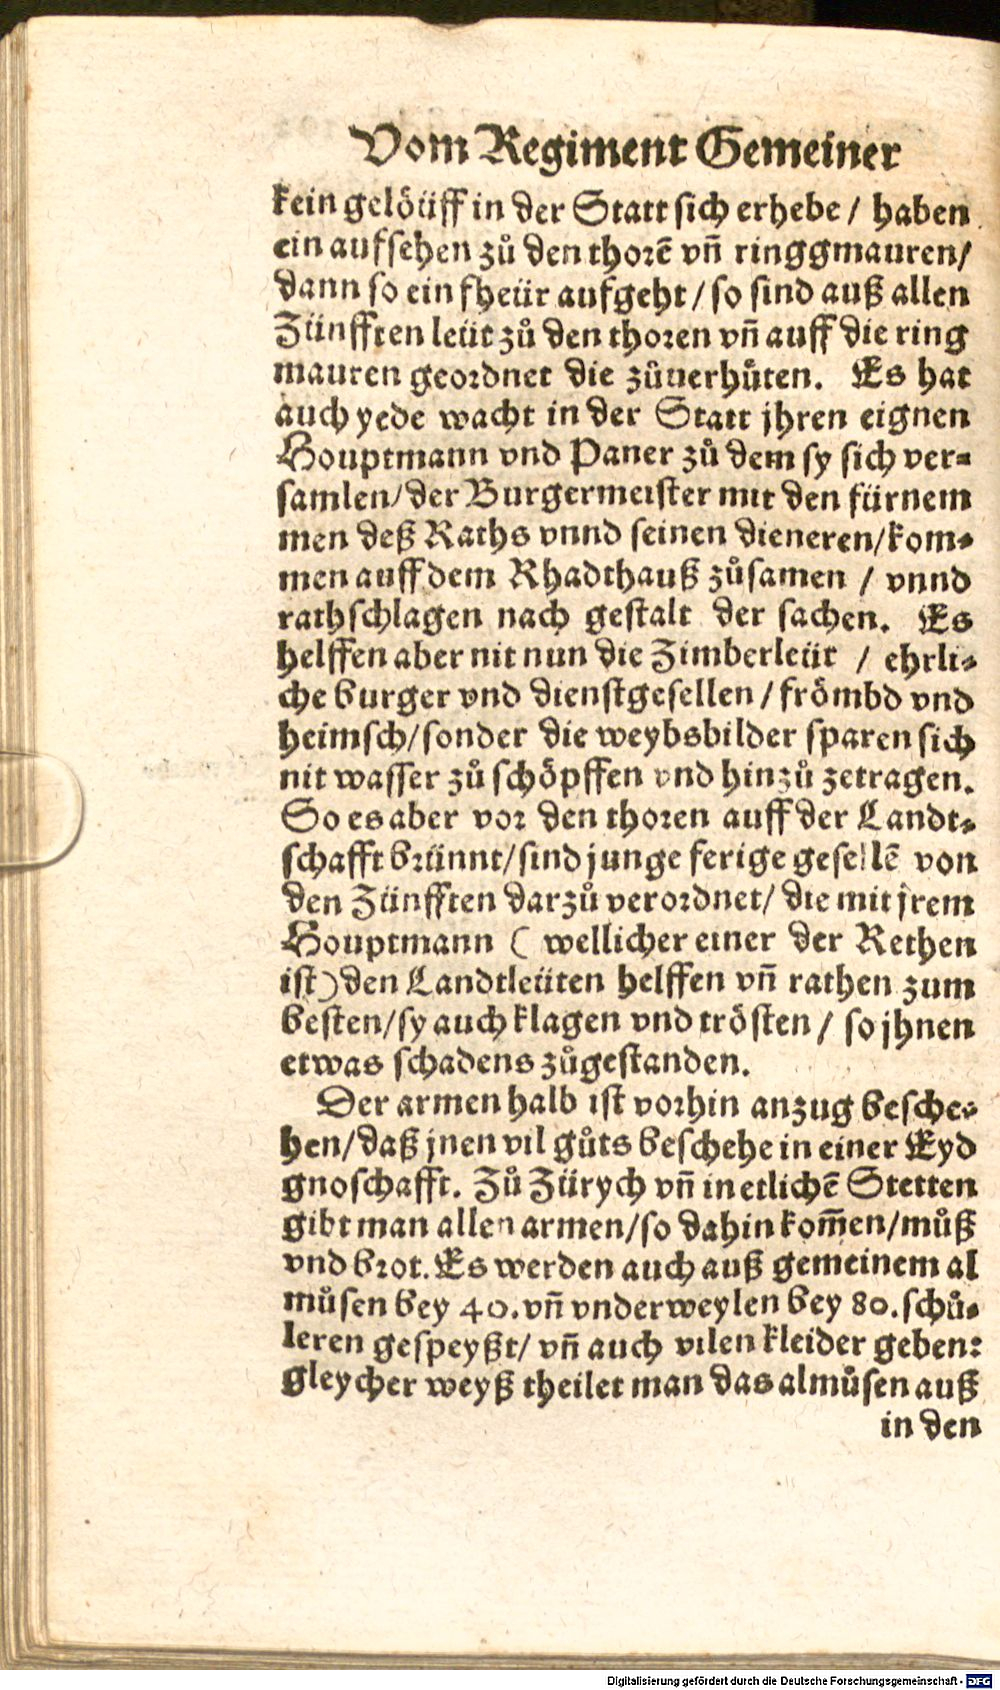 Vom Regiment Gemeiner
kein gelöüff in der Statt sich erhebe / haben
ein aufsehen zů den thorē vñ ringgmauren/
dann so ein fheür aufgeht / so sind auß allen
Zünfften leüt zů den thoren vñ auff die ring
mauren geordnet die zůuerhüten. Es hat
auch yede wacht in der Statt jhren eignen
Houptmann vnd Paner zů dem sy sich ver=
samlen/ der Burgermeister mit den fürnem
men deß Raths vnnd seinen dieneren/kom=
men auff dem Rhadthauß zůsamen / vnnd
rathschlagen nach gestalt der sachen. Es
helffen aber nit nun die Zimberleüt / ehrli=
che burger vnd dienstgesellen / frömbd vnd
heimsch/ sonder die weybsbilder sparen sich
nit wasser zů schöpffen vnd hinzů zetragen.
So es aber vor den thoren auff der Landt=
schafft brünnt/ sind junge ferige gesellē von
den Zünfften darzů verordnet/ die mit jrem
Houptmann ( wellicher einer der Rethen
ist) den Landtleüten helffen vñ rathen zum
besten/ sy auch klagen vnd trösten / so jhnen
etwas schadens zůgestanden.
Der armen halb ist vorhin anzug besche=
hen/ daß jnen vil gůts beschehe in einer Eyd
gnoschafft. Zů Zürych vñ in etlichē Stetten
gibt man allen armen/ so dahin kom̄en/ můß
vnd brot. Es werden auch auß gemeinem al
můsen bey 40. vñ vnderweylen bey 80. schů=
leren gespeyßt/ vñ auch vilen kleider geben:
gleycher weyß theilet man das almůsen auß
in den
Digitalisierung gefördert durch die Deutsche Forschungsgemeinschaft - DFG